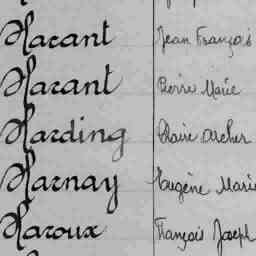 Haxant Jean François
Haxant Pierre Marie
Harding Claire Archer
Harnay Eugène Marie
Haroux François Joseph